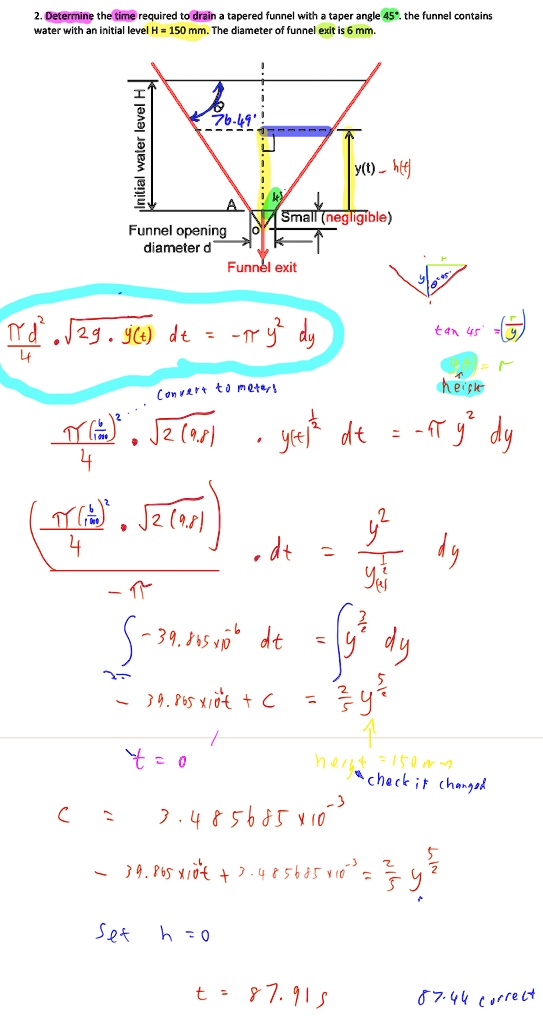 2. Determine the time required to drain a tapered funnel with a taper angle 45°. the funnel contains
water with an initial level H = 150 mm. The diameter of funnel exit is 6 mm.
Initial water level H
θ
76.49'
y(t) - h(t)
A
45
Small (negligible)
o
Funnel opening
diameter d
Funnel exit
r
y θ=45°
πd²/4 · √2g · y(t) dt = -π y² dy
tan 45° = (r/y)
y(t) = r
height
convert to meters
π(6/1000)²/4 · √2(9.8) · y(t)^½ dt = -π y² dy
(π(6/1000)²/4 · √2(9.8))/-π · dt = y²/y(t)^½ dy
∫ -39.865x10^-6 dt = ∫ y^3/2 dy
- 39.865x10^-6 t + C = 2/5 y^5/2
t = 0
height = 150mm
check if changed
C = 3.485685 x10^-3
- 39.865 x10^-6 t + 3.485685 x10^-3 = 2/5 y^5/2
Set h = 0
t = 87.91 s
87.44 correct